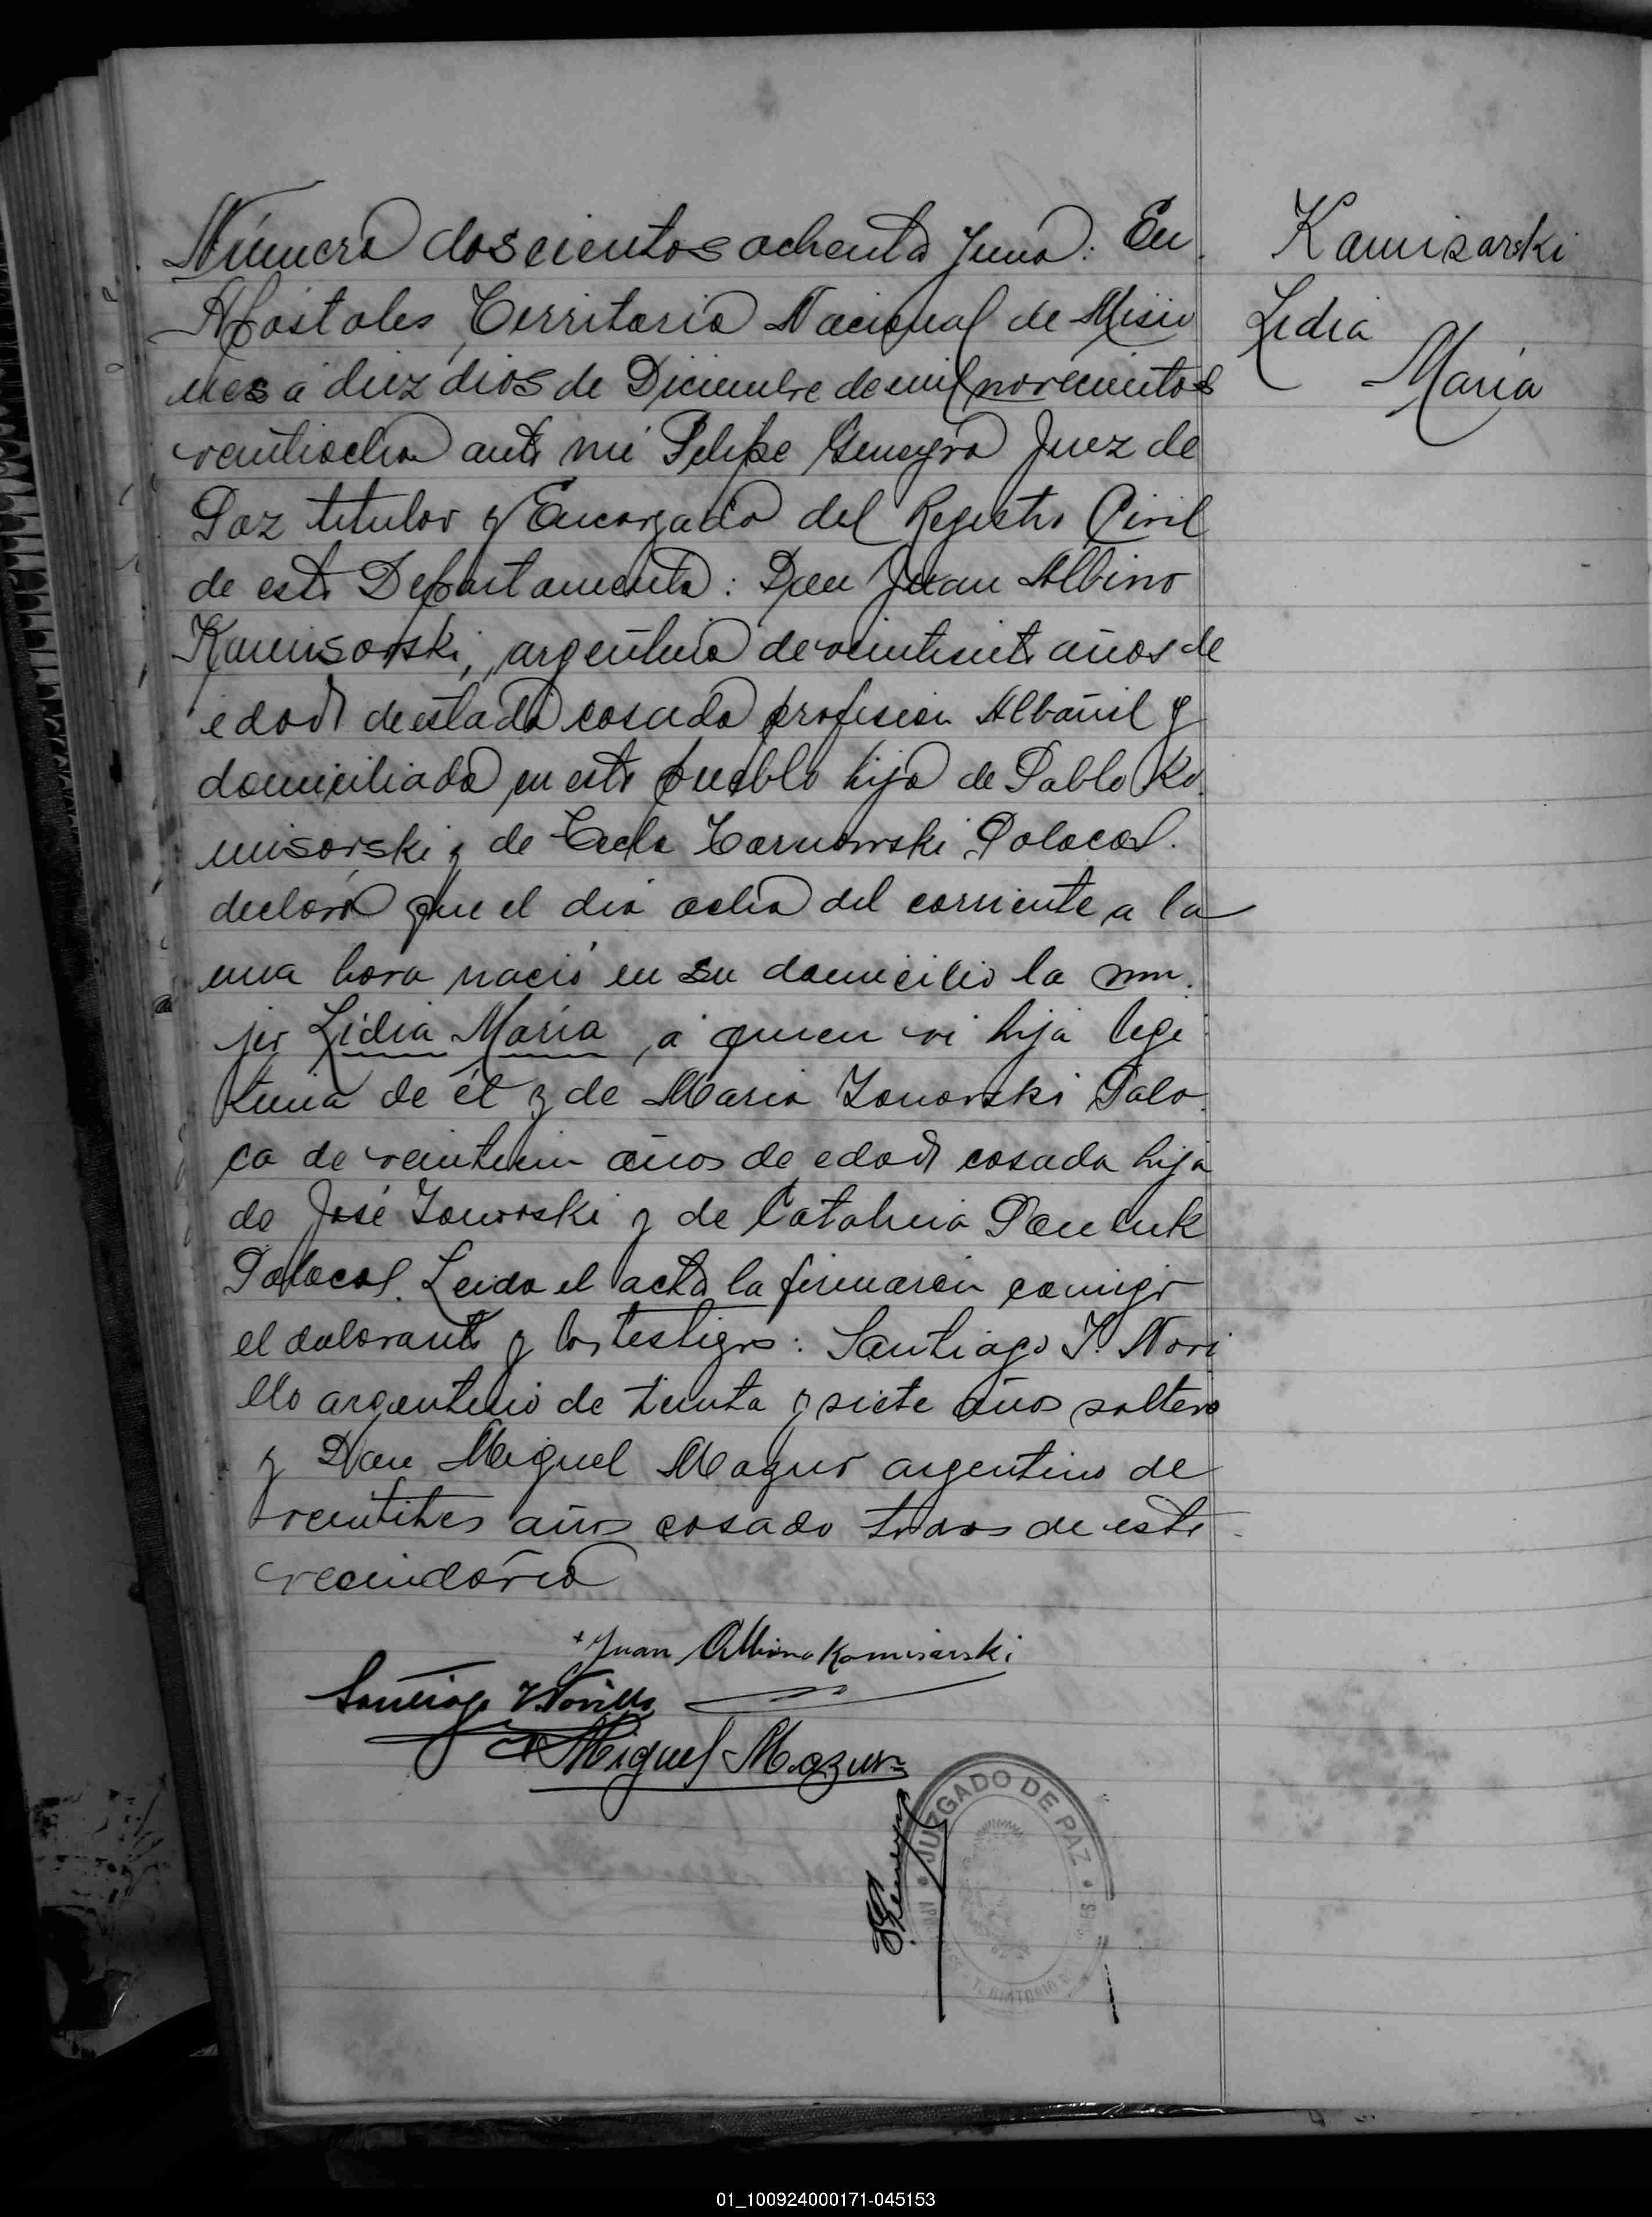 Número doscientos ochenta y uno: En
Apóstoles, Territorio Nacional de Misio
nes a diez dias de Diciembre de mil novecientos
veintiocho ante mi Felipe Geneyro Juez de
Paz titular y Encargado del Registro Civil
de este Departamento: Don Juan Albino
Kamisarski, argentino de veintisiete años de
edad de estado casado profesion Albañil y
domiciliado en este pueblo hijo de Pablo Ka
misarski y de Tecla Tarnowski Polacos.
declaró que el dia ocho del corriente a la
una hora nació en su domicilio la mu
jer Lidia María, a quien vi hija legi
tima de él y de Maria Zonowski Pola
ca de veintiun años de edad casada hija
de José Zonowski y de Catalina Panciuk
Polacos. Leida el acta la firmaron conmigo
el declarante y los testigos: Santiago V. Novi
llo argentino de treinta y siete años soltero
y Don Miguel Mazur argentino de
veintitres años casado todos de este
vecindario
Kamisarski
Lidia
María
+ Juan Albino Kamisarski
Santiago V. Novillo
Miguel Mazur
F. Geneyro
JUZGADO DE PAZ
TERRITORIO
01_100924000171-045153